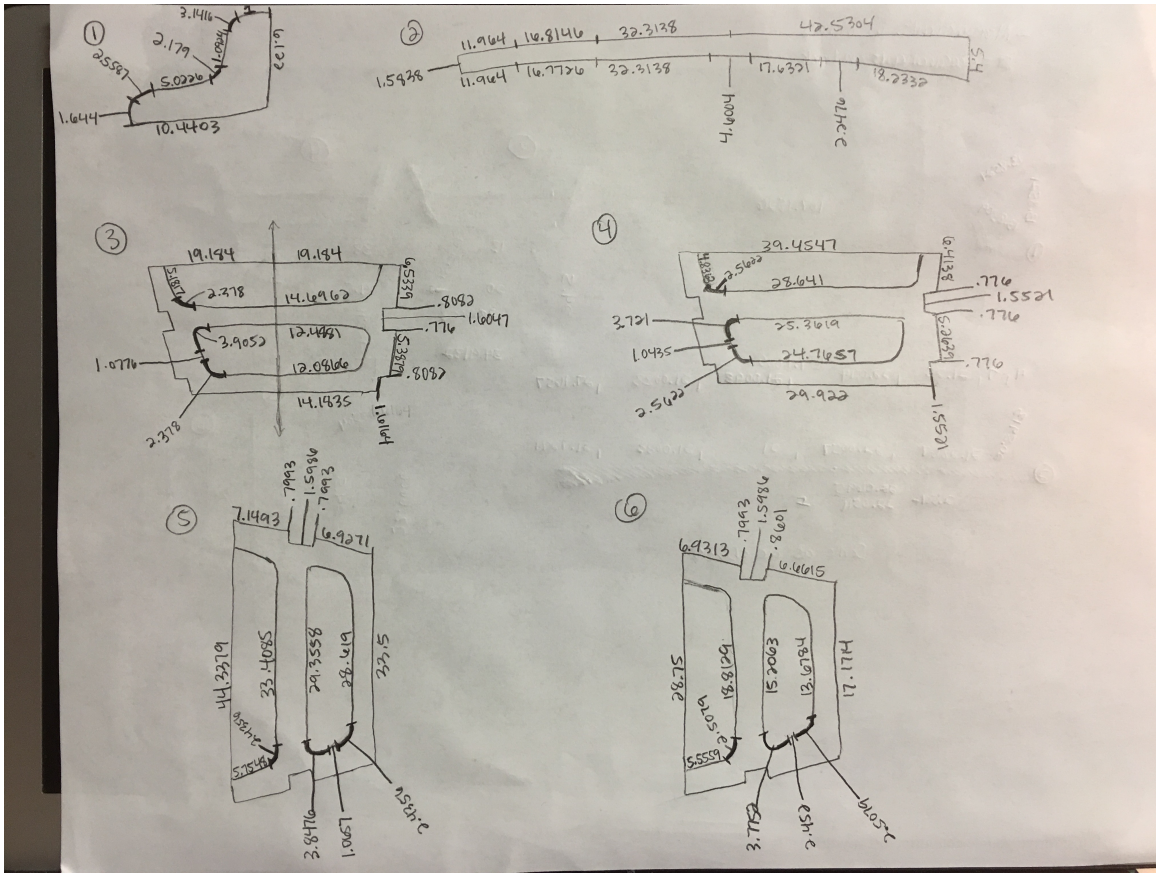 ①
3.1416
1
2.179
1.0924
6.122
2.5587
5.0226
1.644
10.4403
②
11.964
16.8146
32.3138
42.5304
5.4
1.5838
11.964
16.7726
32.3138
4.6004
17.6321
2.3476
18.2332
③
19.184
19.184
5.1817
2.378
14.6962
6.5339
.8082
1.6047
.776
3.9052
12.4481
1.0776
12.0866
5.3879
.8082
14.1835
2.378
1.6164
④
39.4547
4.8362
2.5622
28.641
6.4138
.776
1.5521
.776
3.721
25.3619
1.0435
24.7657
5.2639
.776
2.5622
29.922
1.5521
⑤
7.1493
.7993
1.5986
.7993
6.9271
44.3379
33.4085
29.3558
28.8419
33.5
2.4356
5.7548
3.8476
1.0057
2.4356
⑥
6.9313
.7993
1.5986
.8601
6.6615
28.75
18.8129
15.2063
13.6784
17.1774
2.5079
5.5559
3.7752
2.452
2.5079